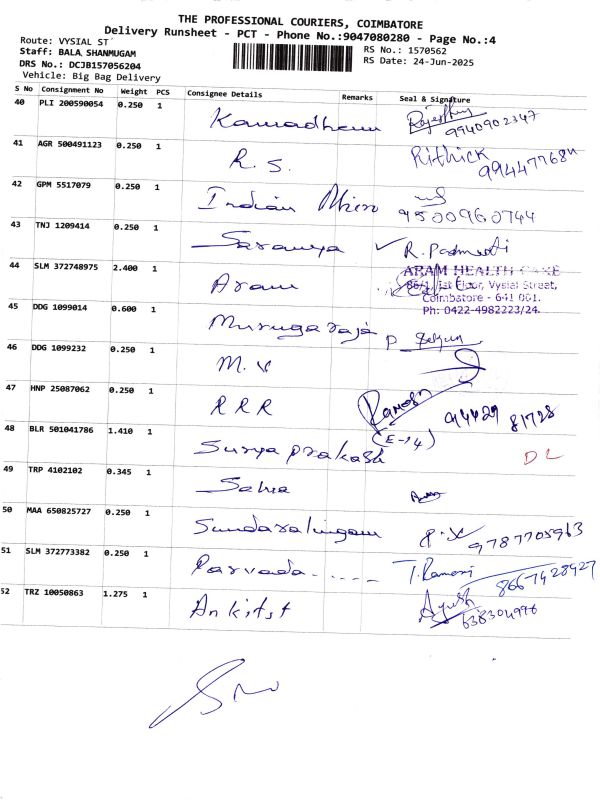 THE PROFESSIONAL COURIERS, COIMBATORE
Delivery Runsheet - PCT - Phone No.:9047080280 - Page No.:4
Route: VYSIAL ST
Staff: BALA SHANMUGAM
DRS No.: DCJB157056204
Vehicle: Big Bag Delivery
RS No.: 1570562
RS Date: 24-Jun-2025
S No Consignment No Weight PCS Consignee Details Remarks Seal & Signature
40 PLI 200590054 0.250 1 Kamadhenu
9940902347
41 AGR 500491123 0.250 1 R. S. Rithick
42 GPM 5517079 0.250 1 Indian
9500960744
43 TNJ 1209414 0.250 1 Saranya R. Padmavati
44 SLM 372748975 2.400 1 Aram
ARAM HEALTH CARE
86/1, 1st Floor, Vysial Street,
Coimbatore - 641 001.
Ph: 0422-4982223/24.
45 DDG 1099014 0.600 1 Murugaraja
46 DDG 1099232 0.250 1 M. V
47 HNP 25087062 0.250 1 R R R Ramesh
48 BLR 501041786 1.410 1 Surya prakash DL
49 TRP 4102102 0.345 1
50 MAA 650825727 0.250 1 Sundaralingam 9787705963
51 SLM 372773382 0.250 1 Parvada..... T. Ramani 8667428427
52 TRZ 10050863 1.275 1 Ankitst Ayush